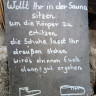 Wollt Ihr in der Sauna
sitzen
um die Körper zu
erhitzen,
die Schuhe lasst Ihr
draußen stehn
wird's diesen Stall
dann gut ergehen